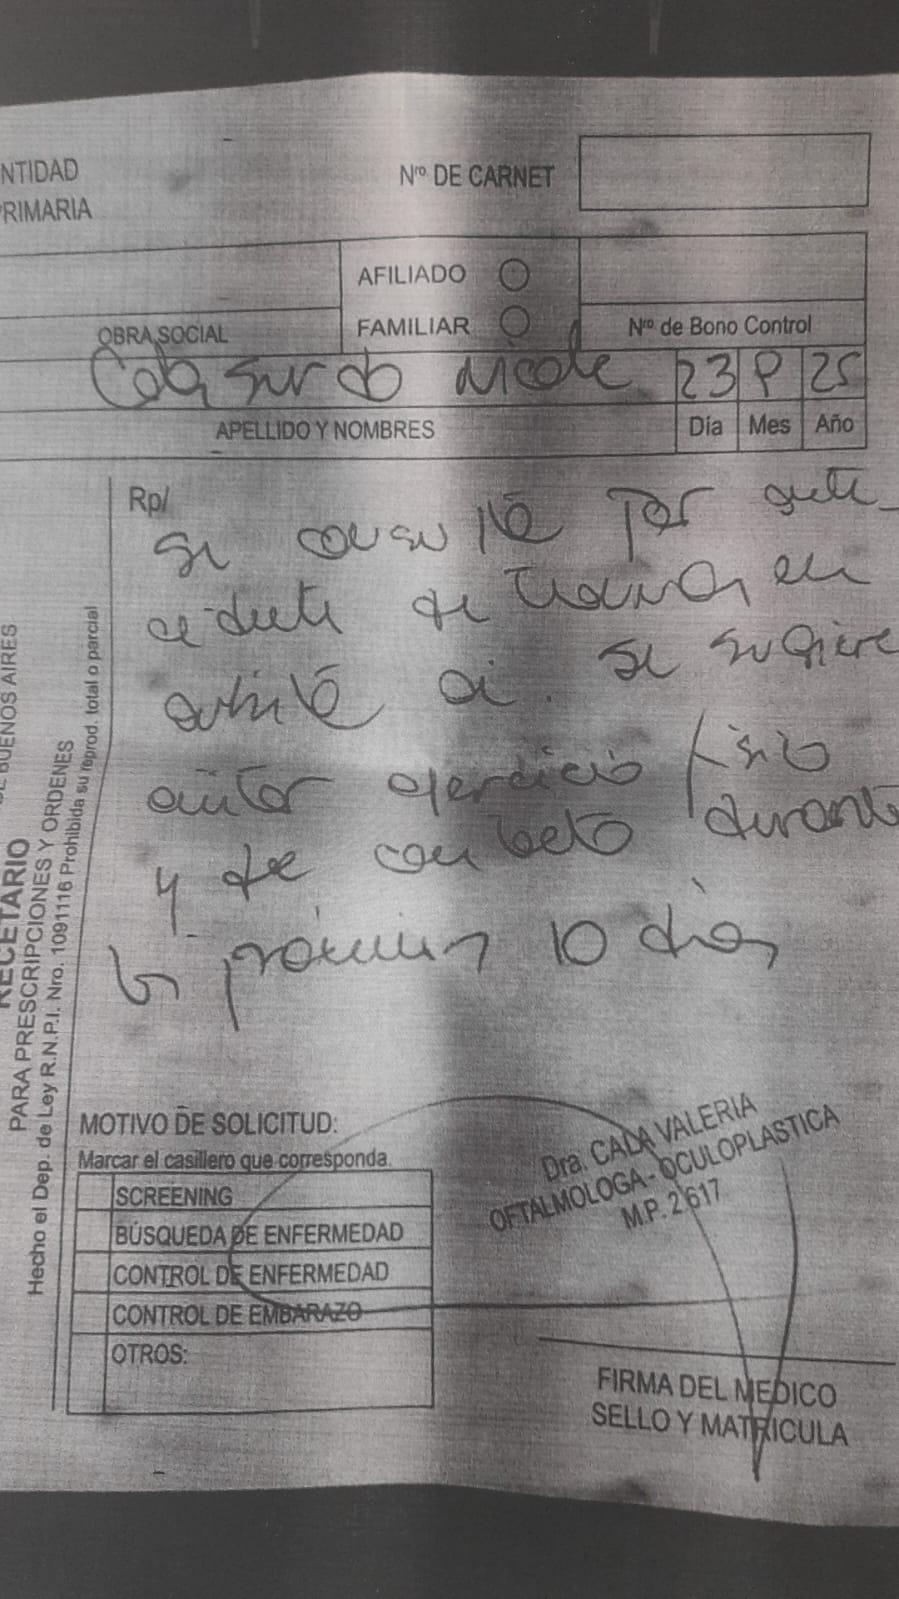 NTIDAD
PRIMARIA
Nro. DE CARNET
AFILIADO
FAMILIAR
OBRA SOCIAL
Nro. de Bono Control
Colasurdo Nicole 23 25
APELLIDO Y NOMBRES
Día Mes Año
Rp/
se consultó por
de trauma en
órbita oi. se sugiere
evitar ejercicio físico
y de combate durante
los próximos 10 días
BUENOS AIRES
RECETARIO
PARA PRESCRIPCIONES Y ORDENES
Hecho el Dep. de Ley R.N.P.I. Nro. 1091116 Prohibida su reprod. total o parcial
MOTIVO DE SOLICITUD:
Marcar el casillero que corresponda.
SCREENING
BÚSQUEDA DE ENFERMEDAD
CONTROL DE ENFERMEDAD
CONTROL DE EMBARAZO
OTROS:
Dra. CALA VALERIA
OFTALMOLOGA - OCULOPLASTICA
M.P. 2617
FIRMA DEL MEDICO
SELLO Y MATRICULA